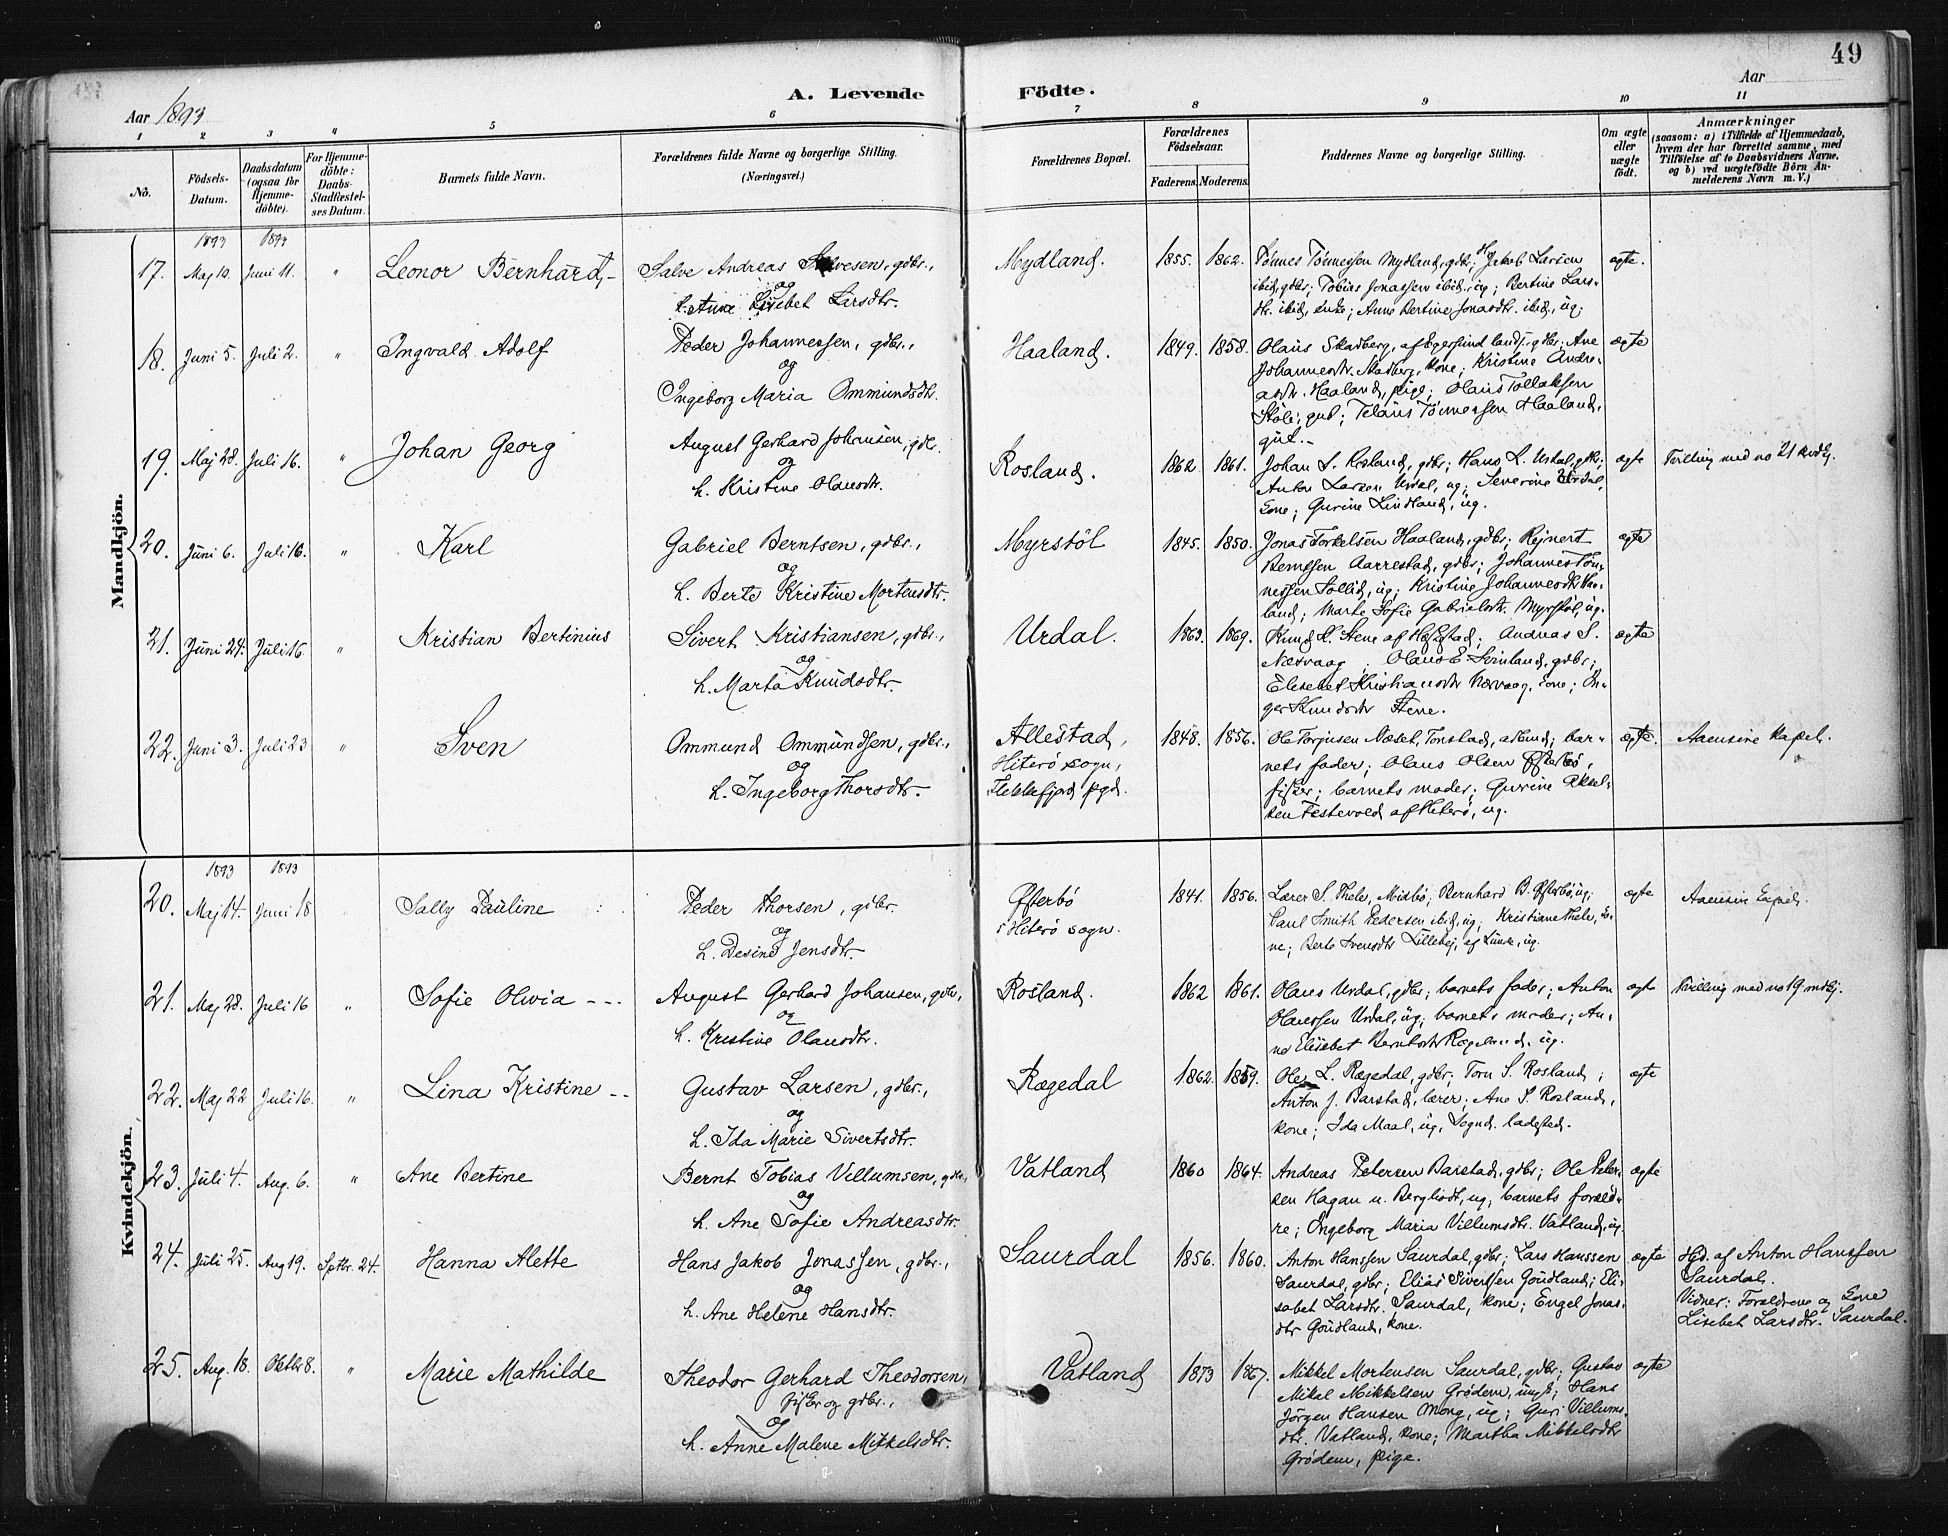 49
A. Levende Födte.
Aar 1893
Aar
1 2 3 " 5 6 7 8 9 10 11
No.
Födsels-Datum.
Daabsdatum (ogsaa for Hjemmedöbte).
For Hjemmedöbte: Daabs-Stadfæstelses Datum.
Barnets fulde Navn.
Forældrenes fulde Navne og borgerlige Stilling.
(Næringsvei.)
Forældrenes Bopæl.
Forældrenes Födselsaar.
Faderens. Moderens.
Faddernes Navne og borgerlige Stilling.
Om ægte eller uægte födt.
Anmærkninger
(saasom: a) i Tilfælde af Hjemmedaab, hvem der har forrettet samme, med Tilföielse af to Daabsvidners Navne, og b) ved uægtefödte Börn Anmelderens Navn m. V.)
Mandkjön.
1893 1893
17. Maj 10. Juni 11. " Leonor Bernhard, - Salve Andreas Salvesen, gdbr., Mydland. 1855. 1862. Tönnes Tönnesen Mydland, gdbr; Jakob Larsen ægte.
og
h. Ane Lisebet Larsdtr.
ibid, gdbr; Tobias Jonassen ibid, ug; Bertine Lars-
dtr. ibid, enke; Anne Bertine Jonasdtr. ibid, ug;
18. Juni 5. Juli 2. " Ingvald Adolf Peder Johannessen, gdbr., Haaland. 1849. 1858. Olaus Skadberg, af Egersund lands., gdbr; Ane ægte
og
Ingeborg Maria Ommundsdtr.
Johannesdtr. Skadberg, kone; Kristine Andre-
asdtr. Haaland, pige; Olaus Tollaksen
Stöle, gut; Telaus Tönnessen Haaland,
gut. -
19. Maj 28. Juli 16. " Johan Georg August Gerhard Johansen, gdbr. Rosland. 1862 1861. Johan S. Rosland, gdbr; Hans L. Urdal, gdbr; ægte Tvilling med no 21 kvdkj.
og
h. Kristine Olausdtr.
Anton Larsen Urdal, ug; Severine Urdal,
kone; Gurine Lindland, ug.
20. Juni 6. Juli 16. " Karl Gabriel Berntsen, gdbr., Myrstöl 1845. 1850. Jonas Torkelsen Haaland, gdbr; Rejnert ægte
og
h. Berte Kristine Mortensdtr.
Berntsen Aarrestad, gdbr; Johannes Tön-
nessen Sollid, ug; Kristine Johannesdtr Haa-
land; Marte Sofie Gabrielsdtr. Myrstöl, ug.
21. Juni 24. Juli 16 " Kristian Bertinius Sivert Kristiansen, gdbr., Urdal. 1863. 1869. Knud K. Stene af Hæstad; Andreas S. ægte
og
h. Marta Knudsdtr.
Næsvaag; Olaus E. Svinland, gdbr;
Elisebet Kristiansdtr Næsvaag, kone; In-
ger Knudsdtr Stene.
22. Juni 3. Juli 23 " Sven Ommund Ommundsen, gdbr., Allestad, 1848. 1856. Ole Torjusen Næset, Tonstad, ; bar- ægte. Aaensire Kapel.
og
h. Ingeborg Thorsdtr.
Hiterö sogn,
Flekkefjord pgd.
nets fader; Olaus Olsen Östebö,
fisker; barnets moder; Gurine Aksel-
sen Festevold af Hiterö, ug.
Kvindekjön.
1893 1893
20. Maj 14. Juni 18 Sally Pauline Peder Thorsen, gdbr. Östebö 1841. 1856. Lærer S. Thele, Midbö, Bernhard B. Östebö, ug; ægte Aaensire Kapel.
og
h. Desine Jensdtr.
i Hiterö sogn.
Paul Smith Pedersen ibid, ug; Kristiane Thele, ko-
ne; Berte Svensdtr Lillehej, af Lunde, ug.
21. Maj 28. Juli 16 " Sofie Olivia - - - August Gerhard Johansen, gdbr, Rosland. 1862 1861. Olaus Urdal, gdbr; barnets fader; Anton ægte Tvilling med no 19 mdkj.
og
h. Kristine Olausdtr.
Olaussen Urdal, ug; barnets moder; An-
ne Elisebet Berntsdtr Rægeland, ug.
22. Maj 22 Juli 16. " Lina Kristine - - Gustav Larsen, gdbr., Rægedal 1862. 1859. Ole L. Rægedal, gdbr; Tom S. Rosland; ægte
og
h. Ida Marie Sivertsdtr.
Anton J. Barstad, lærer; Ane S. Rosland,
kone; Ida Maal, ug, Sognd. ladested.
23. Juli 4. Aug. 6. " Ane Bertine Bernt Tobias Villumsen, gdbr., Vatland 1860 1864. Andreas Petersen Barstad, gdbr; Ole Peter- ægte
og
h. Ane Sofie Andreasdtr.
sen Hagan u. Bergliodt, ug, barnets foræld-
re; Ingeborg Maria Villumsdtr. Vatland, ug.
24. Juli 25. Aug 19. Sptbr. 24. Hanna Alette Hans Jakob Jonassen, gdbr., Saurdal 1856. 1860. Anton Hanssen Saurdal, gdbr; Lars Hanssen ægte Hjd. af Anton Hanssen
og
h. Ane Helene Hansdtr.
Saurdal, gdbr; Elias Sivertsen Goudland; Eli-
sabet Larsdtr. Saurdal, kone; Engel Jonas-
dtr Goudland, kone.
Saurdal.
Vidner: Forældrene og kone
Lisebet Larsdtr. Saurdal.
25. Aug. 18. Oktbr 8. " Marie Mathilde Theodor Gerhard Theodorsen, Vatland 1873 1867. Mikkel Mortensen Saurdal, gdbr; Gustav ægte
fisker og gdbr.,
og
h. Anne Malene Mikkelsdtr.
Mikal Mikkelsen Grödem, ungk; Hans
Jörgen Hansen Mong, ug; Guri Villums-
dtr. Vatland, kone; Martha Mikkelsdtr
Grödem, pige.